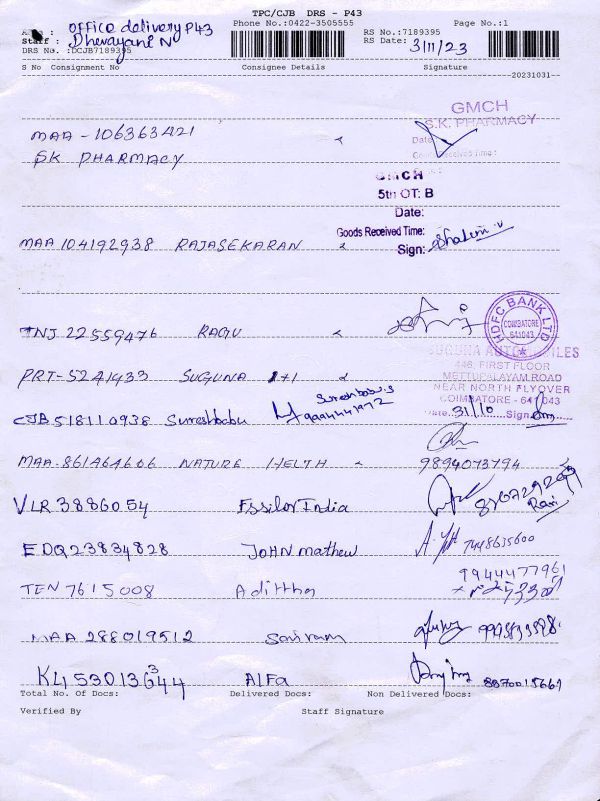 TPC/CJB DRS - P43
Phone No.:0422-3505555 Page No.:1
office delivery P43 RS No.:7189395
Staff : Dherayani N RS Date: 3/11/23
DRS No. :DCJB7189395
S No Consignment No Consignee Details Signature
--20231031--
GMCH
S.K. PHARMACY
MAA - 106363421
Date
SK PHARMACY
Goods Received Time :
GMCH
5th OT: B
Date:
Goods Received Time:
MAA 104192938 RAJASEKARAN Sign:
HDFC BANK LTD
COIMBATORE
641043
TNJ 22559476 RAGU
SUGUNA AUTOMOBILES
446, FIRST FLOOR
PRT-5241433 SUGUNA 1+1 METTUPALAYAM ROAD
NEAR NORTH FLYOVER
Sureshbabu.s COIMBATORE - 641 043
CJB 518110938 Sureshbabu 9994441972 Date. 31/10 Sign
MAA-861464606 NATURE HELTH 9894073794
VLR 3886054 Essilor India Ravi
EDQ 23834828 JOHN mathew 7448635600
TEN 7615008 Adittha 9944477961
MAA 288019512 Sairam
K453013644 Alfa 8870015661
Total No. Of Docs: Delivered Docs: Non Delivered Docs:
Verified By Staff Signature